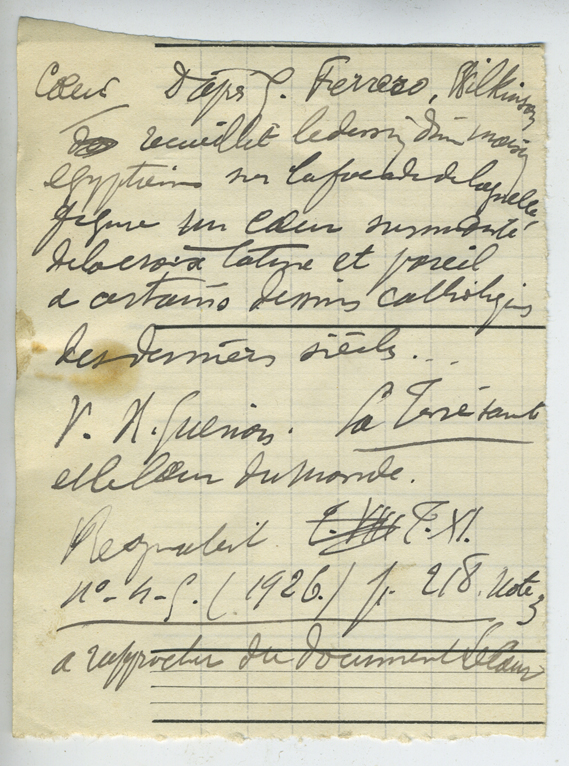 Cœur D'après G. Ferrero, Wilkinson
recueillit le dessin d'une maison
egyptienne sur la façade de laquelle
figure un cœur surmonté
de la croix latine et pareil
a certains dessins catholiques
des derniers siècles...
V. R. Guenon. La Terre sainte
et le Cœur du monde.
Regnabit. T. VIII T. XI.
n°-4-5. (1926.) p. 218. Note 3
a rapprocher du document